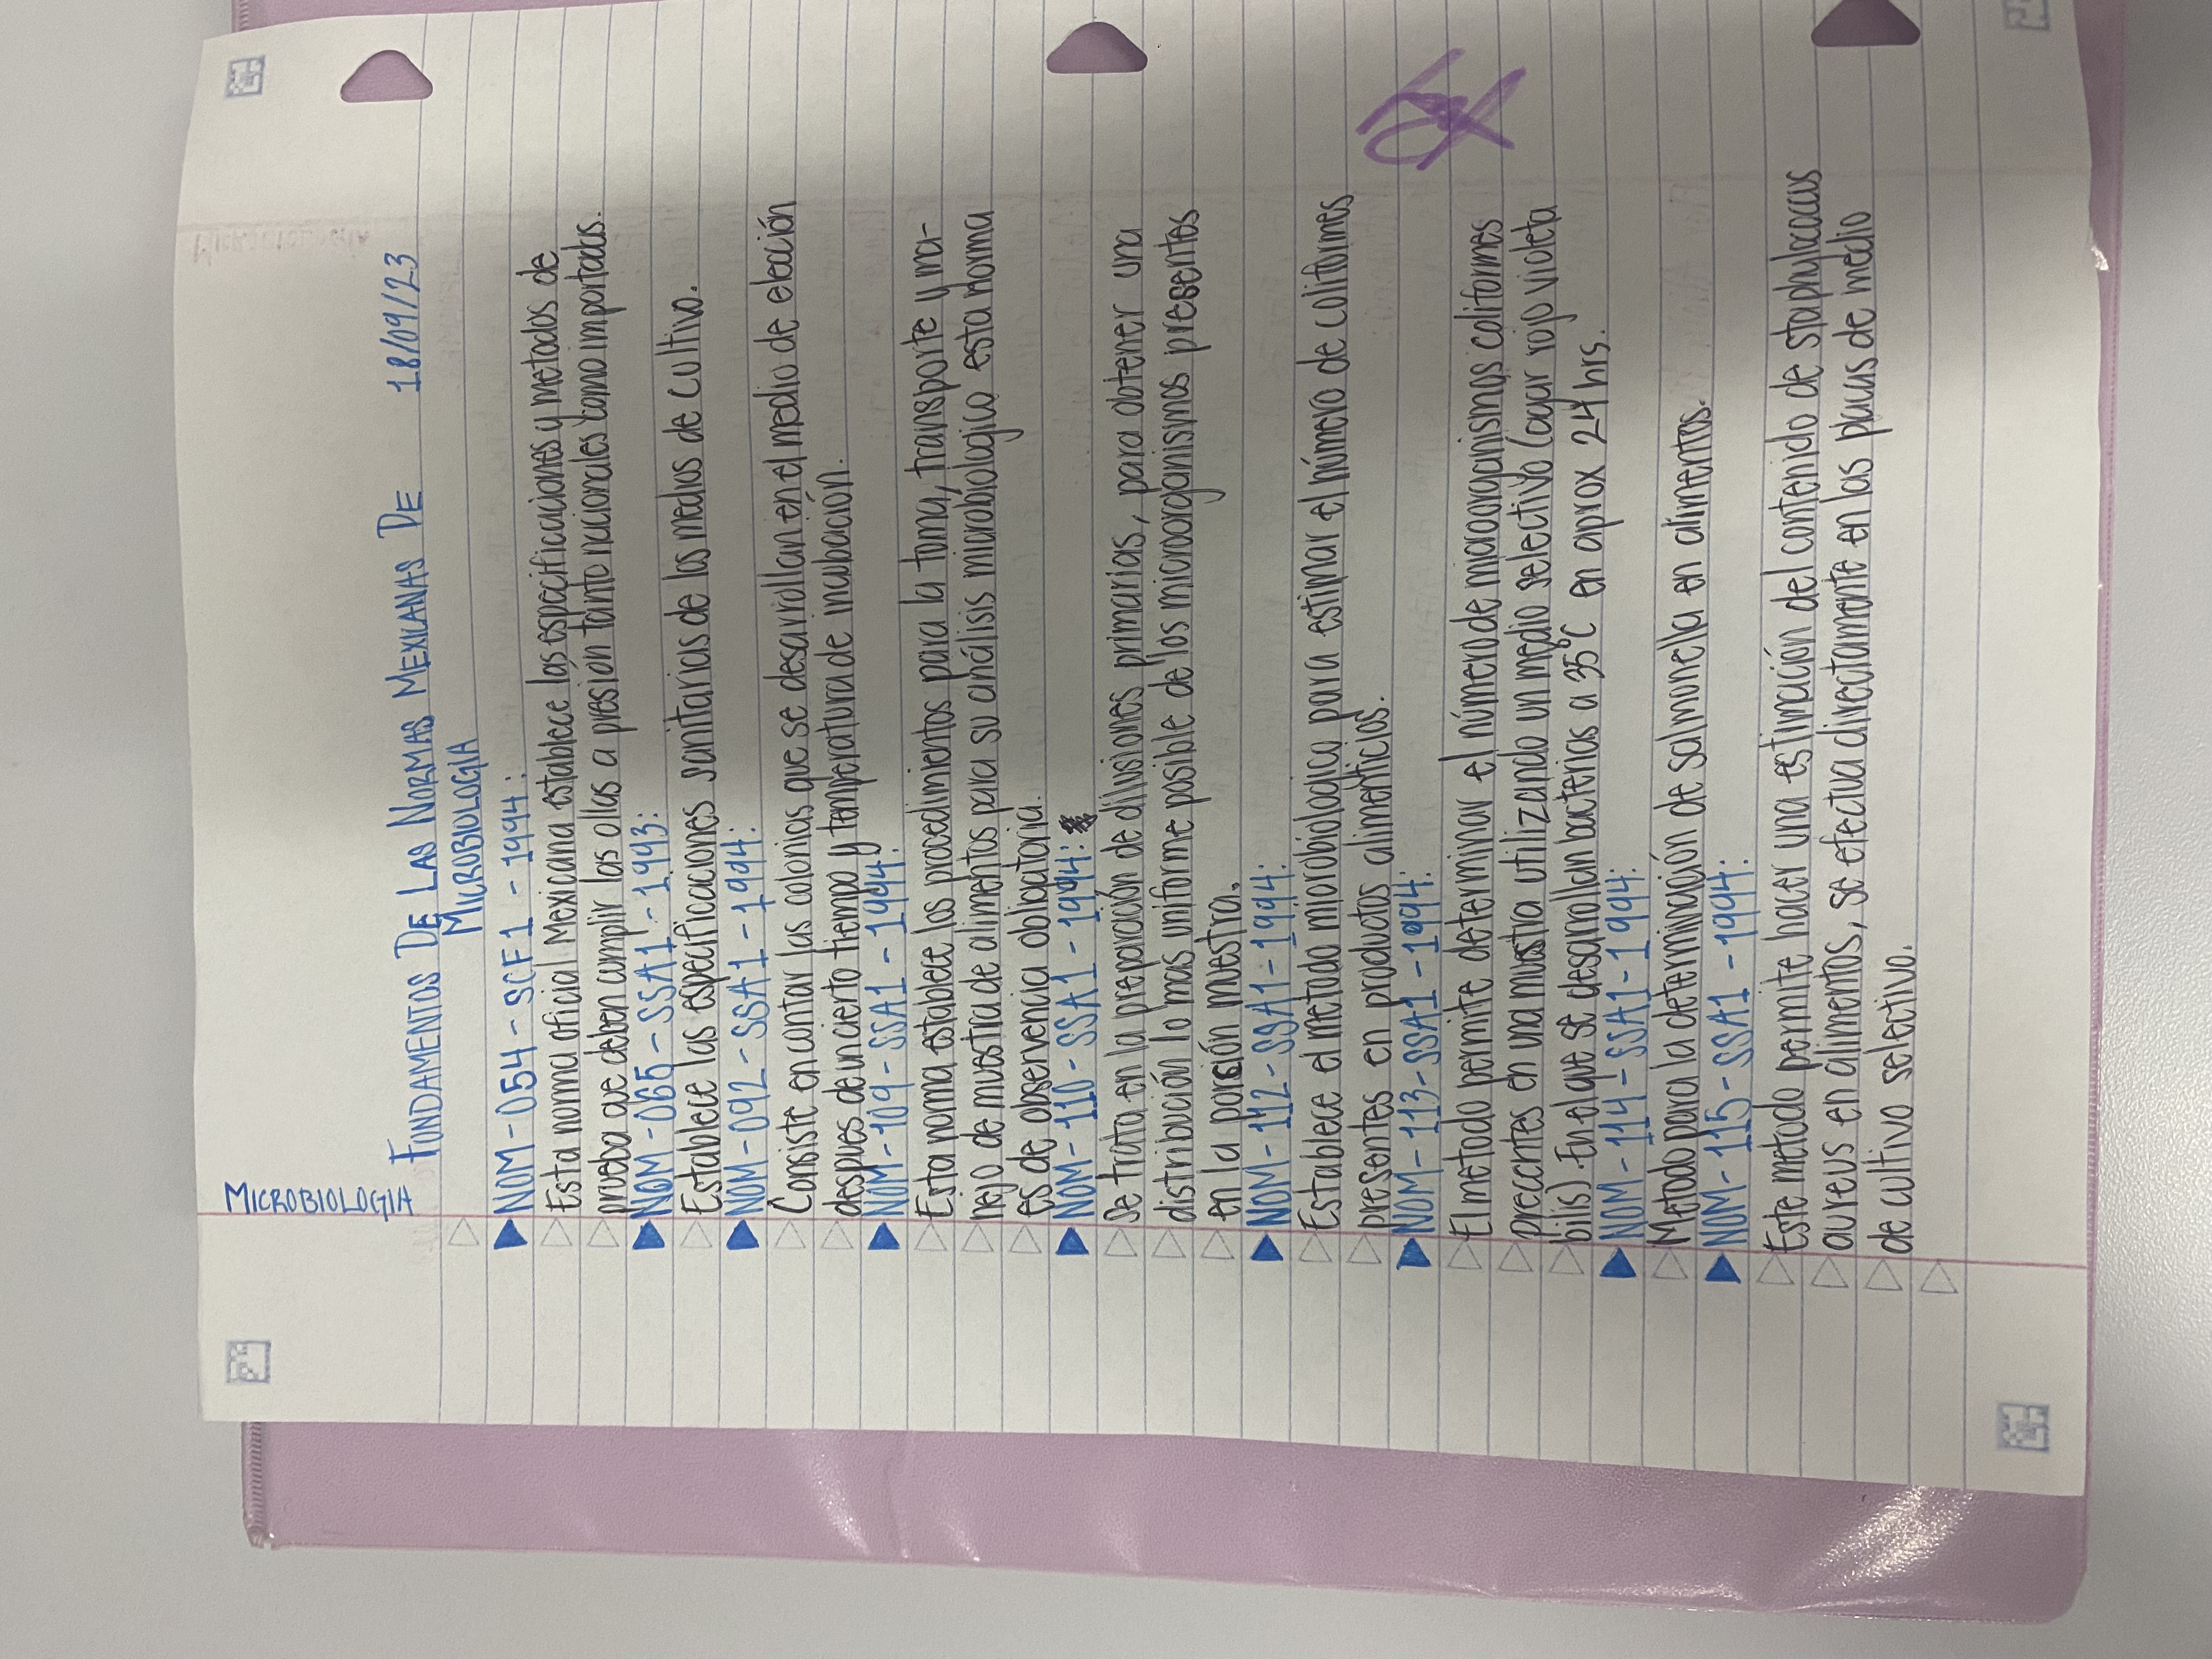 MICROBIOLOGIA
FUNDAMENTOS DE LAS NORMAS MEXICANAS DE 18/09/23
MICROBIOLOGIA
NOM-054-SCF1-1994:
Esta norma oficial Mexicana establece las especificaciones y metodos de
prueba que deben cumplir las ollas a presión tanto nacionales como importadas.
NOM-065-SSA1-1993:
Establece las especificaciones sanitarias de los medios de cultivo.
NOM-092-SSA1-1994:
Consiste en contar las colonias que se desarrollan en el medio de elección
despues de un cierto tiempo y temperatura de incubación.
NOM-109-SSA1-1994:
Esta norma establece los procedimientos para la toma, transporte y ma-
nejo de muestra de alimentos para su análisis microbiologico, esta norma
es de observencia obligatoria.
NOM-110-SSA1-1994:
Se trata en la preparación de dilusiones primarias, para obtener una
distribución lo mas uniforme posible de los microorganismos presentes
en la porsión muestra.
NOM-112-SSA1-1994:
Establece el metodo microbiologico para estimar el número de coliformes
presentes en productos alimenticios.
NOM-113-SSA1-1994:
El metodo permite determinar el número de microorganismos coliformes
precentes en una muestra utilizando un medio selectivo (agar rojo violeta
bilis). En el que se desarrollan bacterias a 35°C en aprox 24 hrs.
NOM-114-SSA1-1994:
Metodo para la determinación de salmonella en alimentos.
NOM-115-SSA1-1994:
Este metodo permite hacer una estimación del contenido de staphylococcus
aureus en alimentos, se efectua directamente en las placas de medio
de cultivo selectivo.